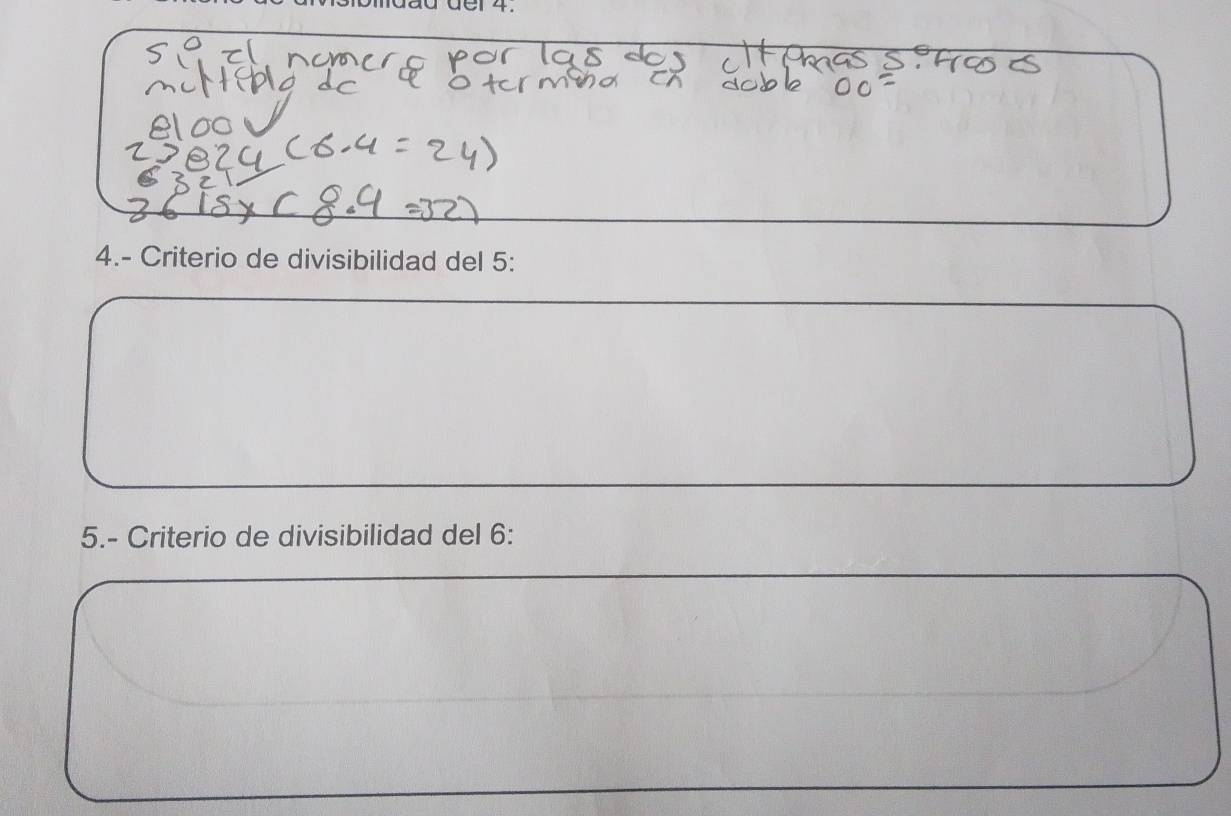 de divisibilidad del 4:
Si el numero por las dos ultimas sifras es
multiplo de 4 o termina en doble 00=
8100 ✓
23824 (6.4 = 24)
6321
3615x (8.4 =32)
4.- Criterio de divisibilidad del 5:
5.- Criterio de divisibilidad del 6: